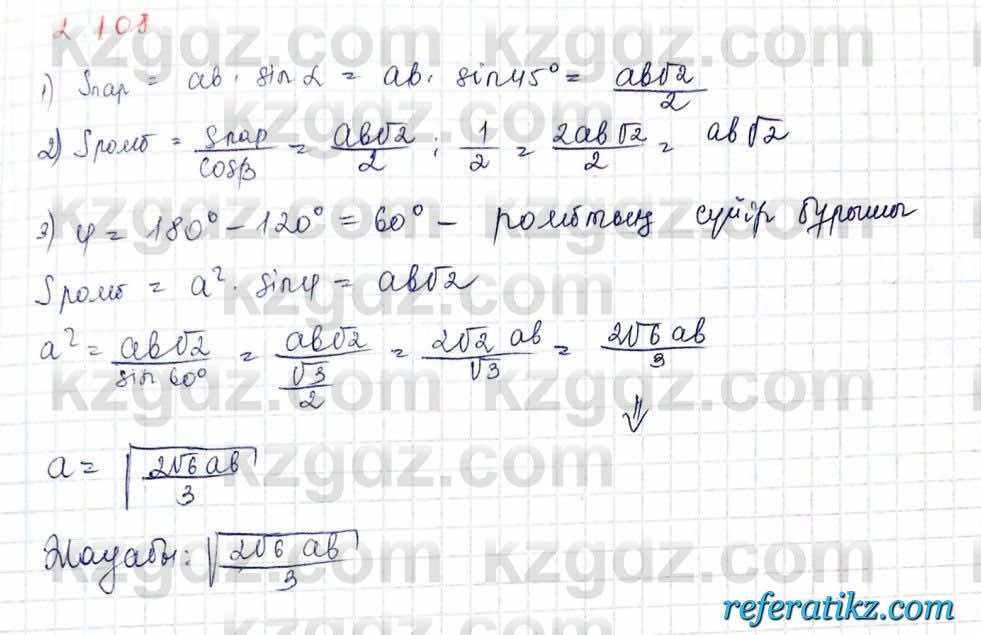 2.108
1) Sпар = ab · sin α = ab · sin 45° = ab√2/2
2) Sромб = Sпар/cosβ = ab√2/2 : 1/2 = 2ab√2/2 = ab√2
3) φ = 180° - 120° = 60° - ромбтың сүйір бұрышы
Sромб = a² · sinφ = ab√2
a² = ab√2/sin 60° = ab√2/(√3/2) = 2√2 ab/√3 = 2√6 ab/3
⇓
a = √(2√6 ab/3)
Жауабы: √(2√6 ab/3)
kzgdz.com
referatikz.com